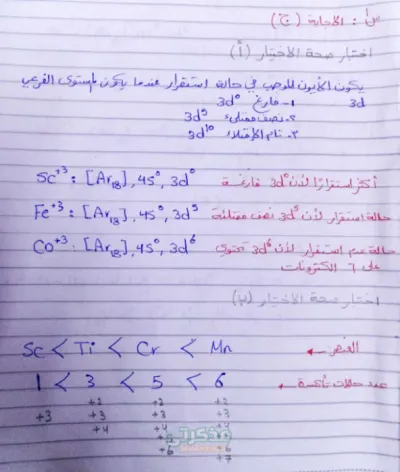 س١: الإجابة (ج)
اختبار صحة الاختيار (أ)
يكون الأيون الموجب في حالة استقرار عندما يكون المستوى الفرعي
3d ١- فارغ 3d⁰
٢. نصف ممتلئ 3d⁵
٣. تام الإمتلاء 3d¹⁰
Sc⁺³ : [Ar₁₈], 4S⁰, 3d⁰ أكثر استقرارًا لأن 3d⁰ فارغة
Fe⁺³ : [Ar₁₈], 4S⁰, 3d⁵ حالة استقرار لأن 3d⁵ نصف ممتلئة
Co⁺³ : [Ar₁₈], 4S⁰, 3d⁶ حالة عدم استقرار لأن 3d⁶ تحتوي
على ٦ الكترونات
اختبار صحة الاختيار (ب)
Sc < Ti < Cr < Mn العنصر
1 < 3 < 5 < 6 عدد حالات تأكسدة
+2 +2 +2
+3 +3 +3 +3
+4 +4 +4
+6 +6
+7
مذكرتي